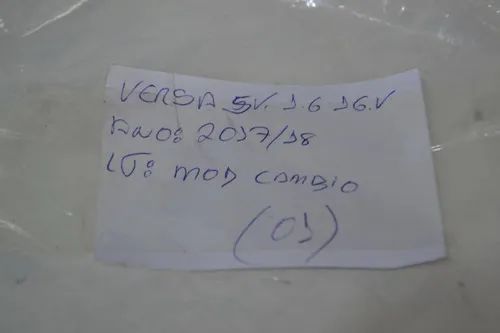 VERSA SV. 1.6 16.V
ANO: 2017/18
LT: MOD CAMBIO
(01)